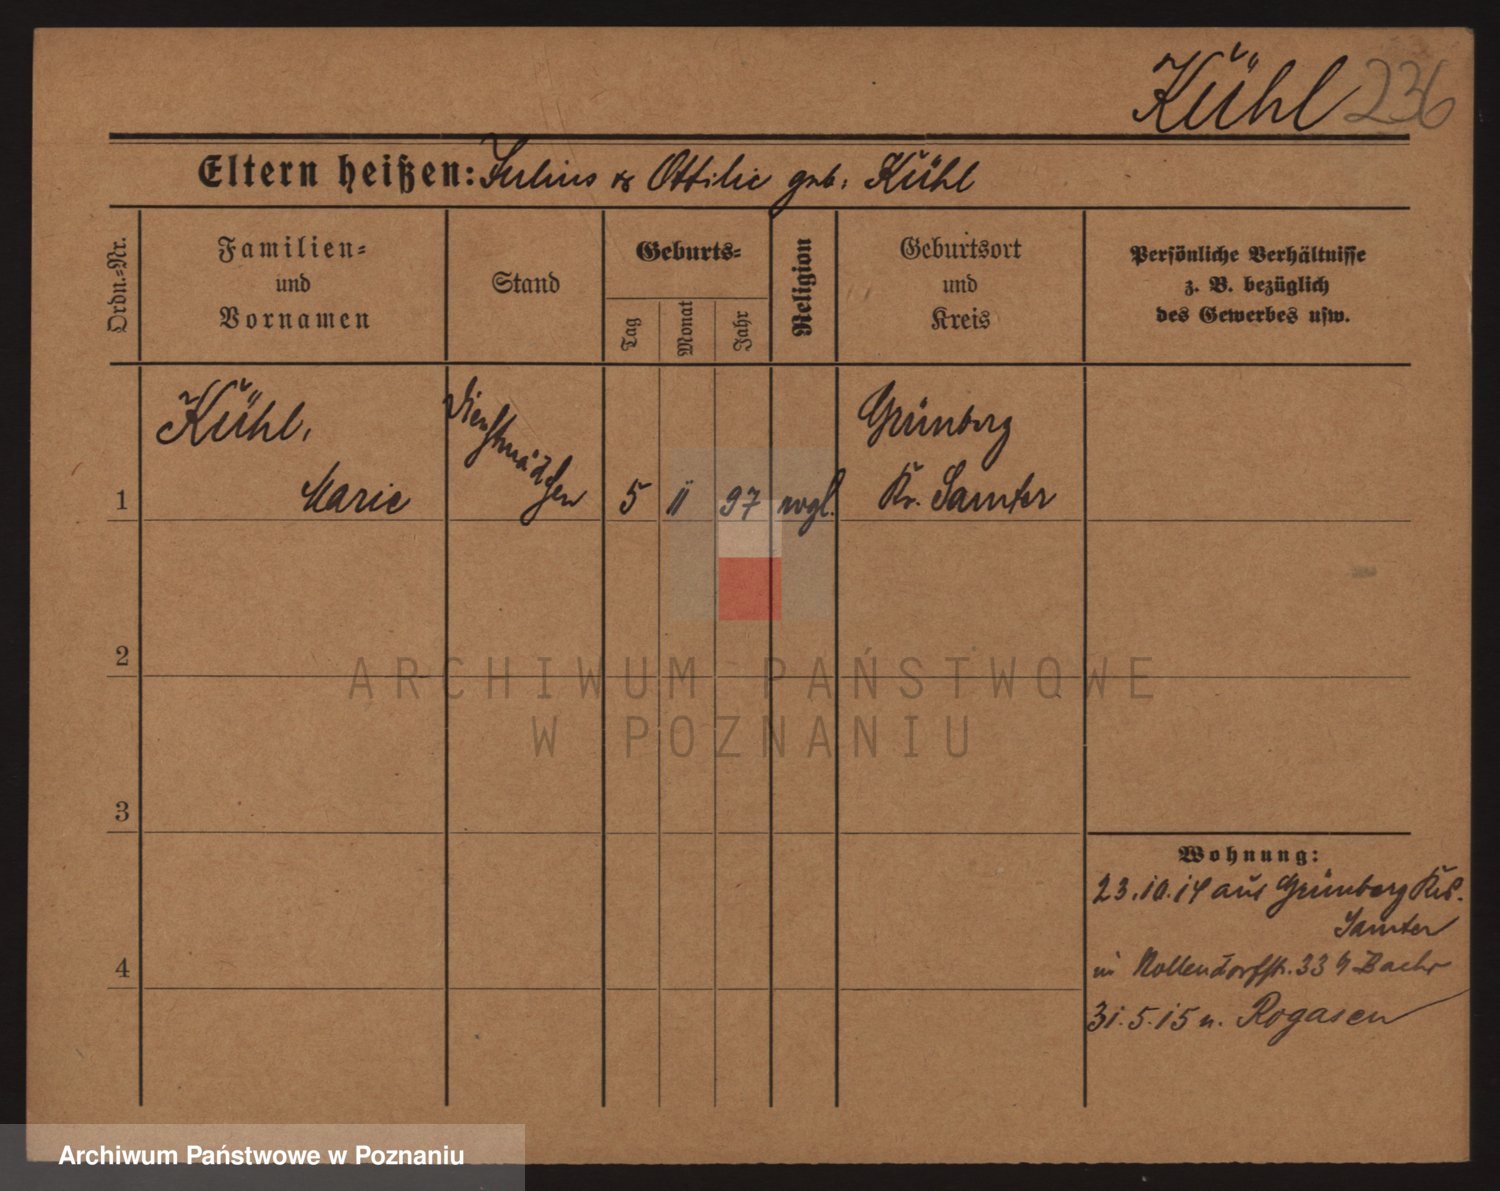 Kühl 236
Eltern heißen: Julius & Ottilie geb. Kühl
Ordn.-Nr.
Familien-
und
Vornamen
Stand
Geburts-
Tag
Monat
Jahr
Religion
Geburtsort
und
Kreis
Persönliche Verhältnisse
z. B. bezüglich
des Gewerbes usw.
1
Kühl,
Marie
Dienstmädchen
5
11
97
evgl.
Grünberg
Kr. Samter
2
ARCHIWUM PAŃSTWOWE
W POZNANIU
3
4
Wohnung:
23.10.14 aus Grünberg Krs.
Samter
in Nollendorfstr. 33 b Bachr
31.5.15 n. Rogasen
Archiwum Państwowe w Poznaniu